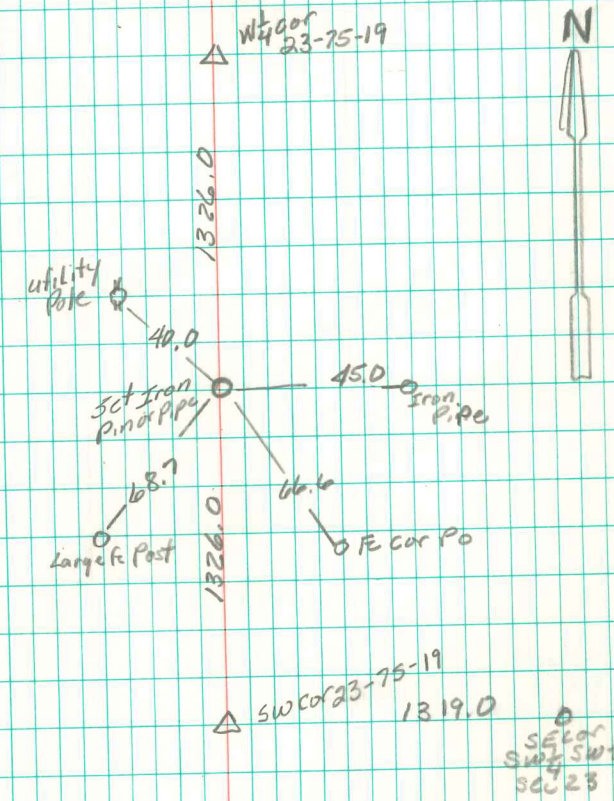 W¼ cor
23-75-19
N
1326.0
utility
Pole
40.0
Set Iron
Pin or Pipe
45.0
Iron
Pipe
68.7
66.6
Large Fc Post
Fc Cor Po
1326.0
SW cor 23-75-19
1319.0
SE cor
SW¼ SW¼
sec 23